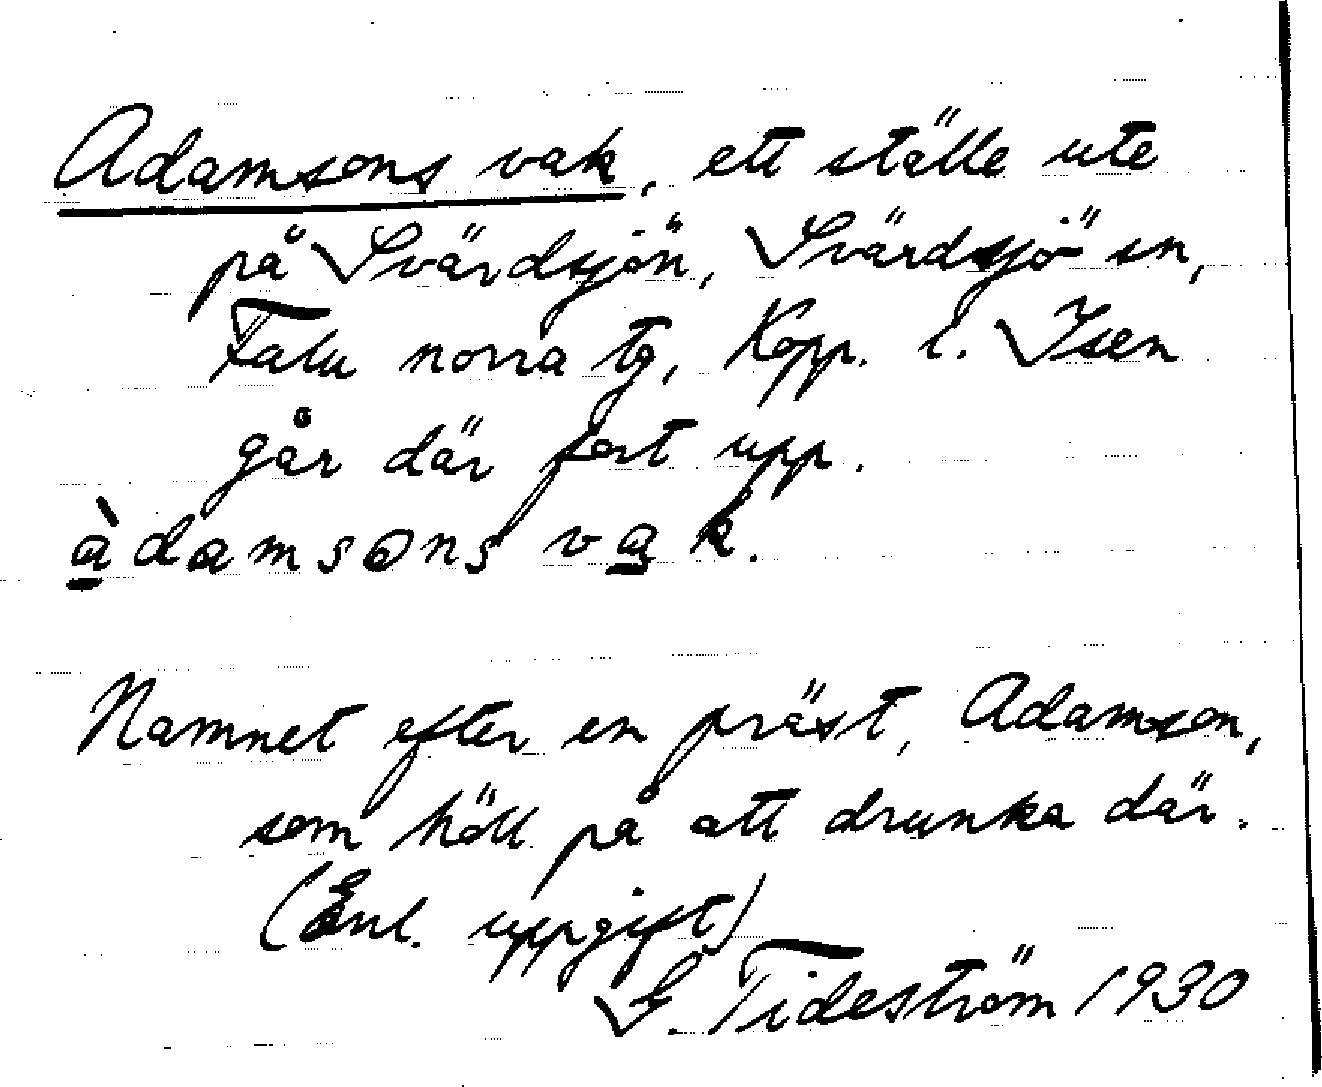 Adamsons vak, ett ställe ute
på Svärdsjön, Svärdsjö sn,
Falu norra tg, Kopp. l. Isen
går där fort upp.
àdamsons vak.
Namnet efter en präst, Adamson,
som höll på att drunka där.
(Enl. uppgift)
G. Tideström 1930